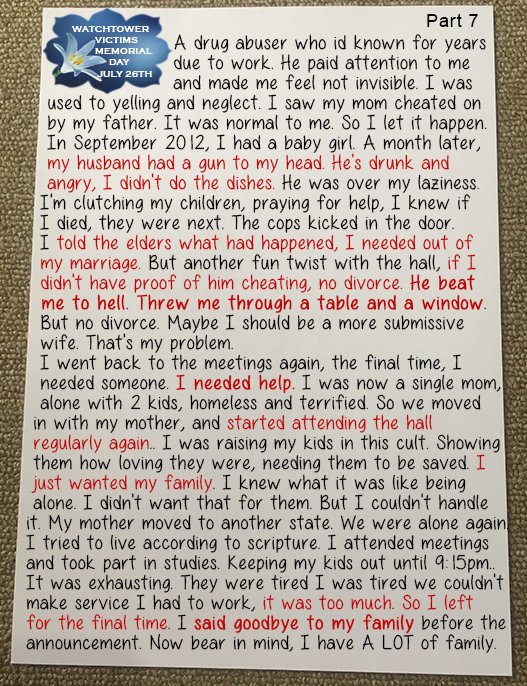 Part 7
WATCHTOWER
VICTIMS
MEMORIAL
DAY
JULY 26TH
A drug abuser who id known for years
due to work. He paid attention to me
and made me feel not invisible. I was
used to yelling and neglect. I saw my mom cheated on
by my father. It was normal to me. So I let it happen.
In September 2012, I had a baby girl. A month later,
my husband had a gun to my head. He's drunk and
angry, I didn't do the dishes. He was over my laziness.
I'm clutching my children, praying for help, I knew if
I died, they were next. The cops kicked in the door.
I told the elders what had happened, I needed out of
my marriage. But another fun twist with the hall, if I
didn't have proof of him cheating, no divorce. He beat
me to hell. Threw me through a table and a window.
But no divorce. Maybe I should be a more submissive
wife. That's my problem.
I went back to the meetings again, the final time, I
needed someone. I needed help. I was now a single mom,
alone with 2 kids, homeless and terrified. So we moved
in with my mother, and started attending the hall
regularly again.. I was raising my kids in this cult. Showing
them how loving they were, needing them to be saved. I
just wanted my family. I knew what it was like being
alone. I didn't want that for them. But I couldn't handle
it. My mother moved to another state. We were alone again.
I tried to live according to scripture. I attended meetings
and took part in studies. Keeping my kids out until 9:15pm..
It was exhausting. They were tired I was tired we couldn't
make service I had to work, it was too much. So I left
for the final time. I said goodbye to my family before the
announcement. Now bear in mind, I have A LOT of family.